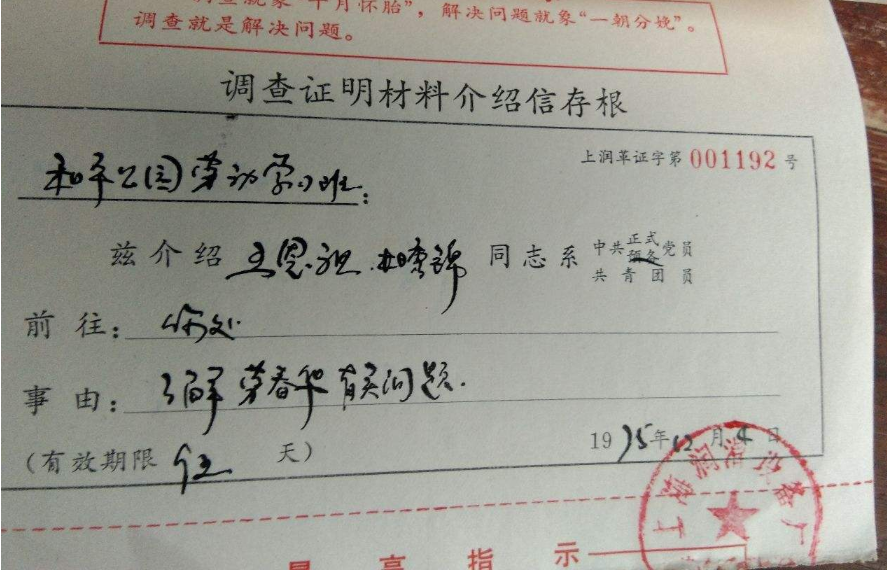 调查就象“十月怀胎”，解决问题就象“一朝分娩”。
调查就是解决问题。
调查证明材料介绍信存根
上润革证字第 001192 号
和平公园劳动学习班：
兹介绍 王恩祖 同志系 中共正式预备党员 共青团员
前往：你处
事由：了解 荣春华 有关问题.
（有效期限 伍 天） 1975年12月4日
上海润滑设备厂
最高指示